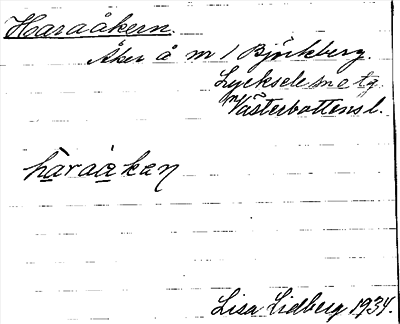 Haraåkern.
Åker å m / Björkberg.
Lycksele
Västerbottens l.
haraåkɐn
Lisa Lidberg 1934.